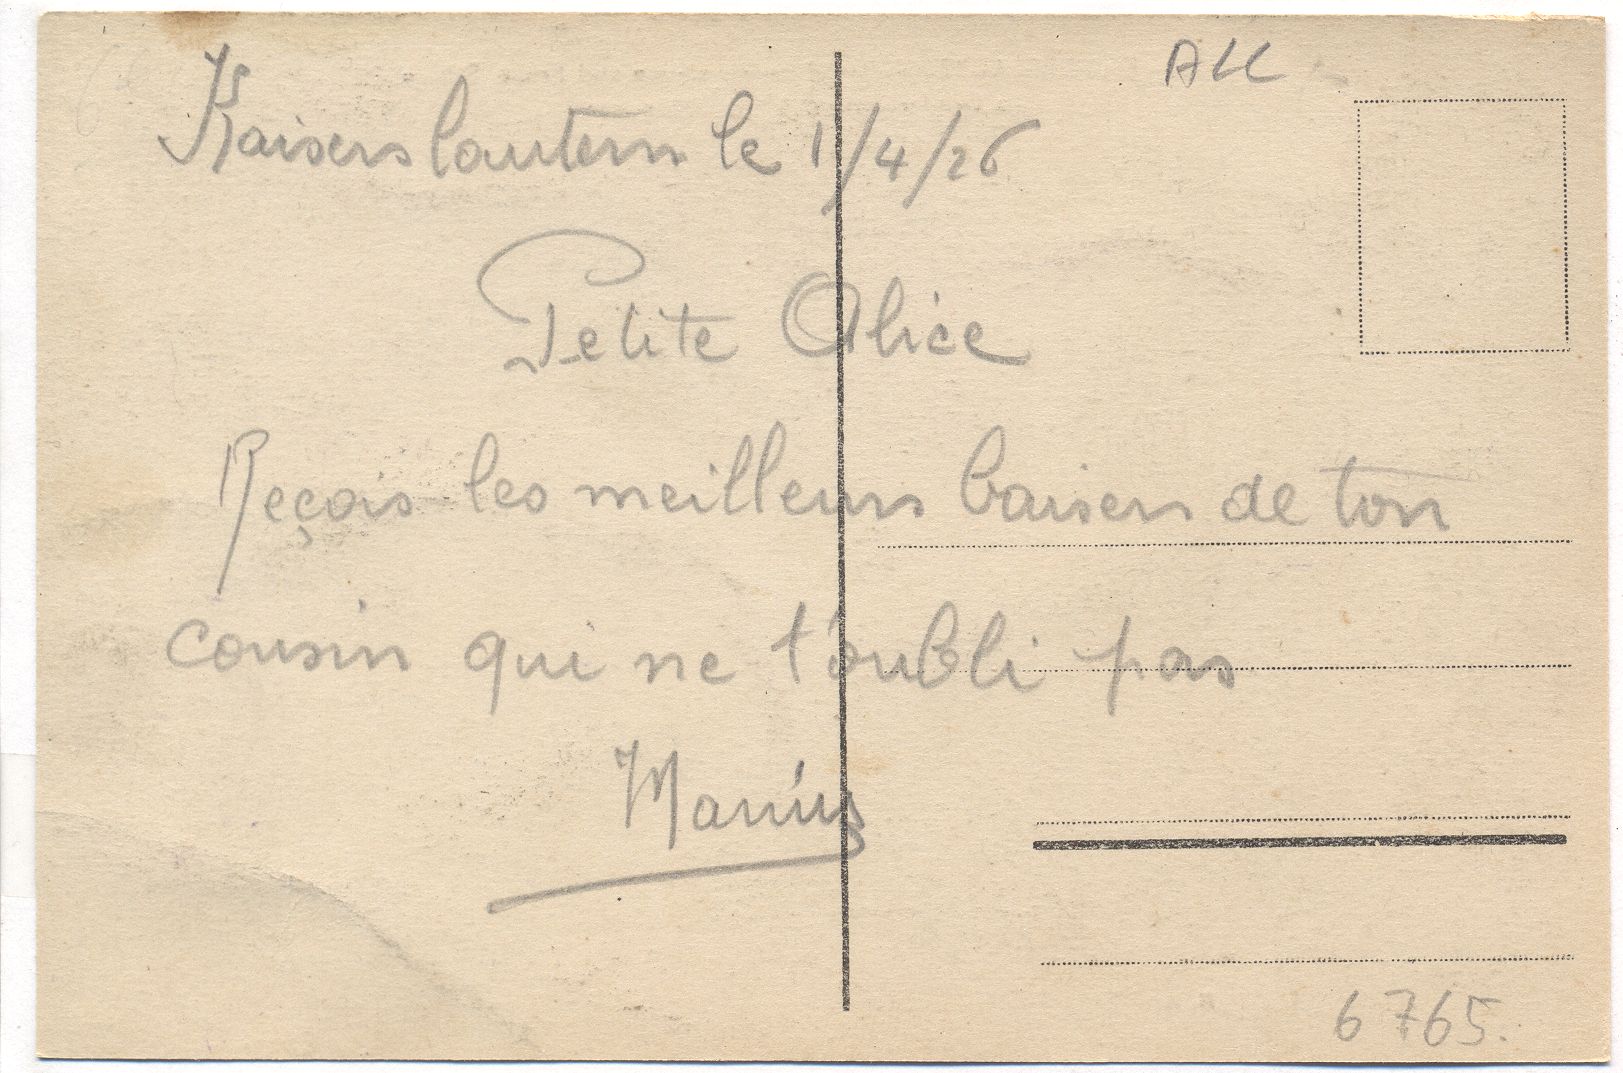 ALL
Kaiserslautern le 1/4/26
Petite Alice
Reçois les meilleurs baisers de ton
cousin qui ne t'oubli pas
Marius
6765.